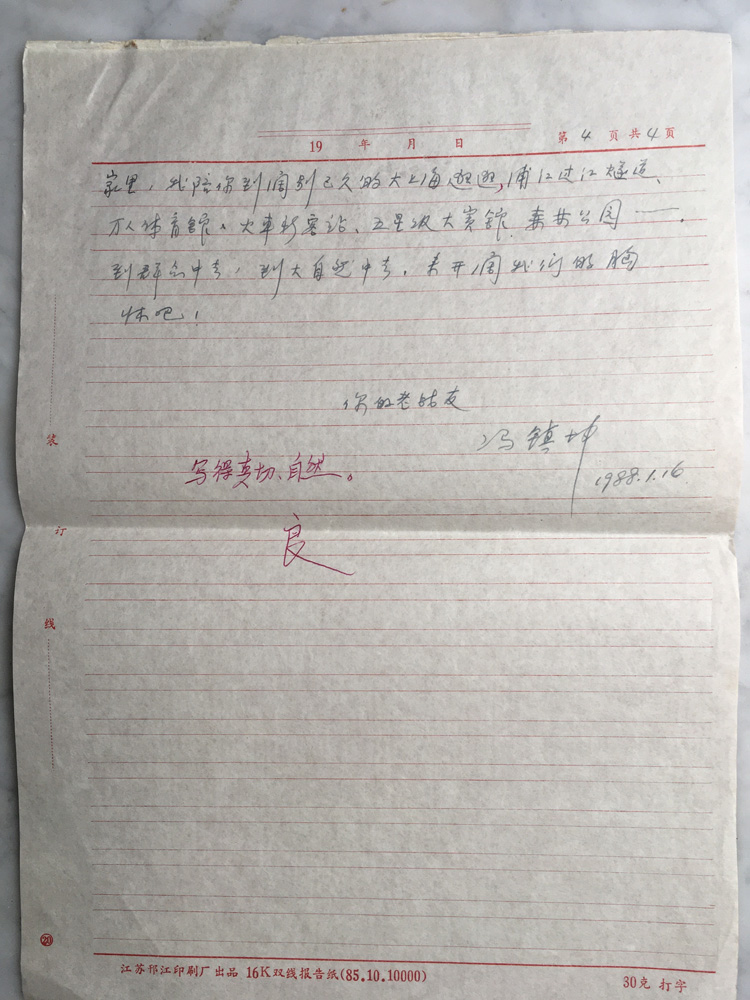 19 年 月 日 第 4 页 共 4 页
家里，我陪你到阔别已久的大上海逛逛，浦江过江隧道、
万人体育馆、火车新客站、五星级大宾馆、森林公园——.
到群众中去，到大自然中去，来开阔我们的胸
怀吧！
你的老战友
冯镇坤
1988.1.16.
写得真切、自然。
良
装
订
线
⑳
江苏邗江印刷厂出品 16K双线报告纸(85.10.10000)
30克 打字